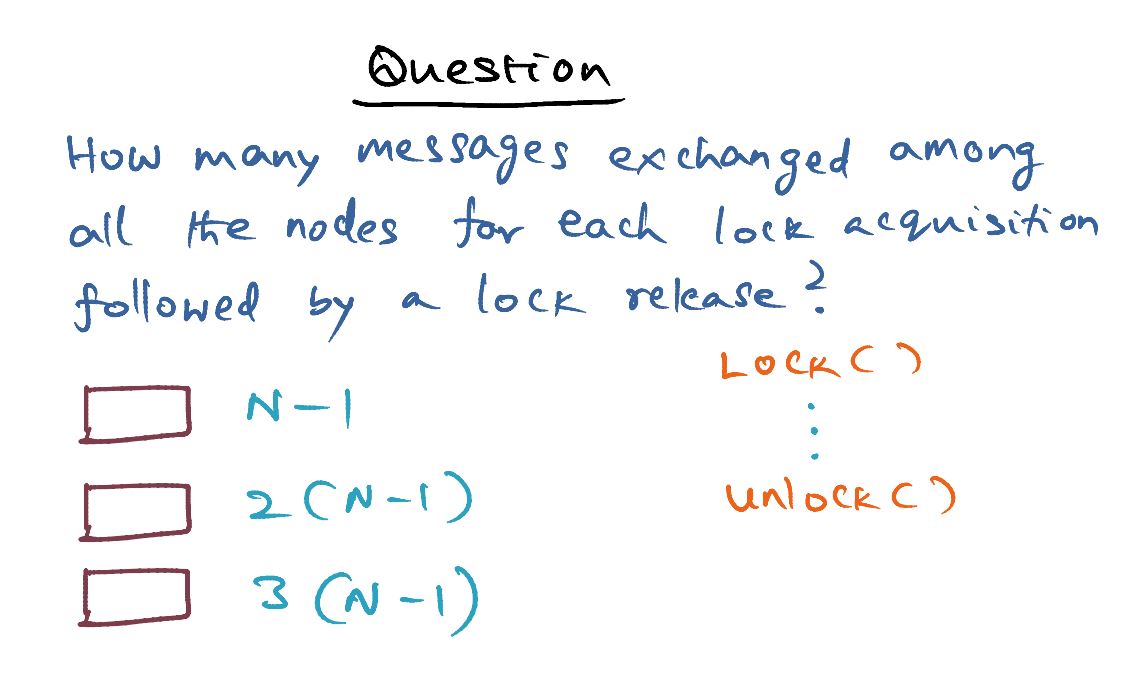 Question
How many messages exchanged among
all the nodes for each lock acquisition
followed by a lock release?
LOCK()
N-1
2(N-1)
UNLOCK()
3(N-1)